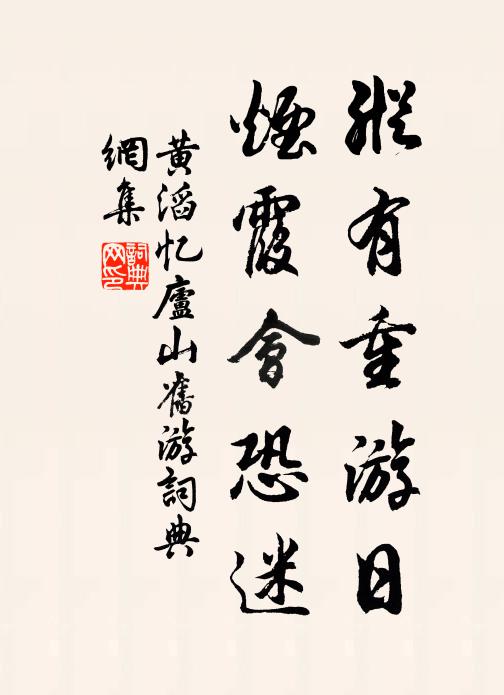 縱有重游日
煙霞會恐迷
黄滔忆廬山舊游詞典
網集
詞典网印